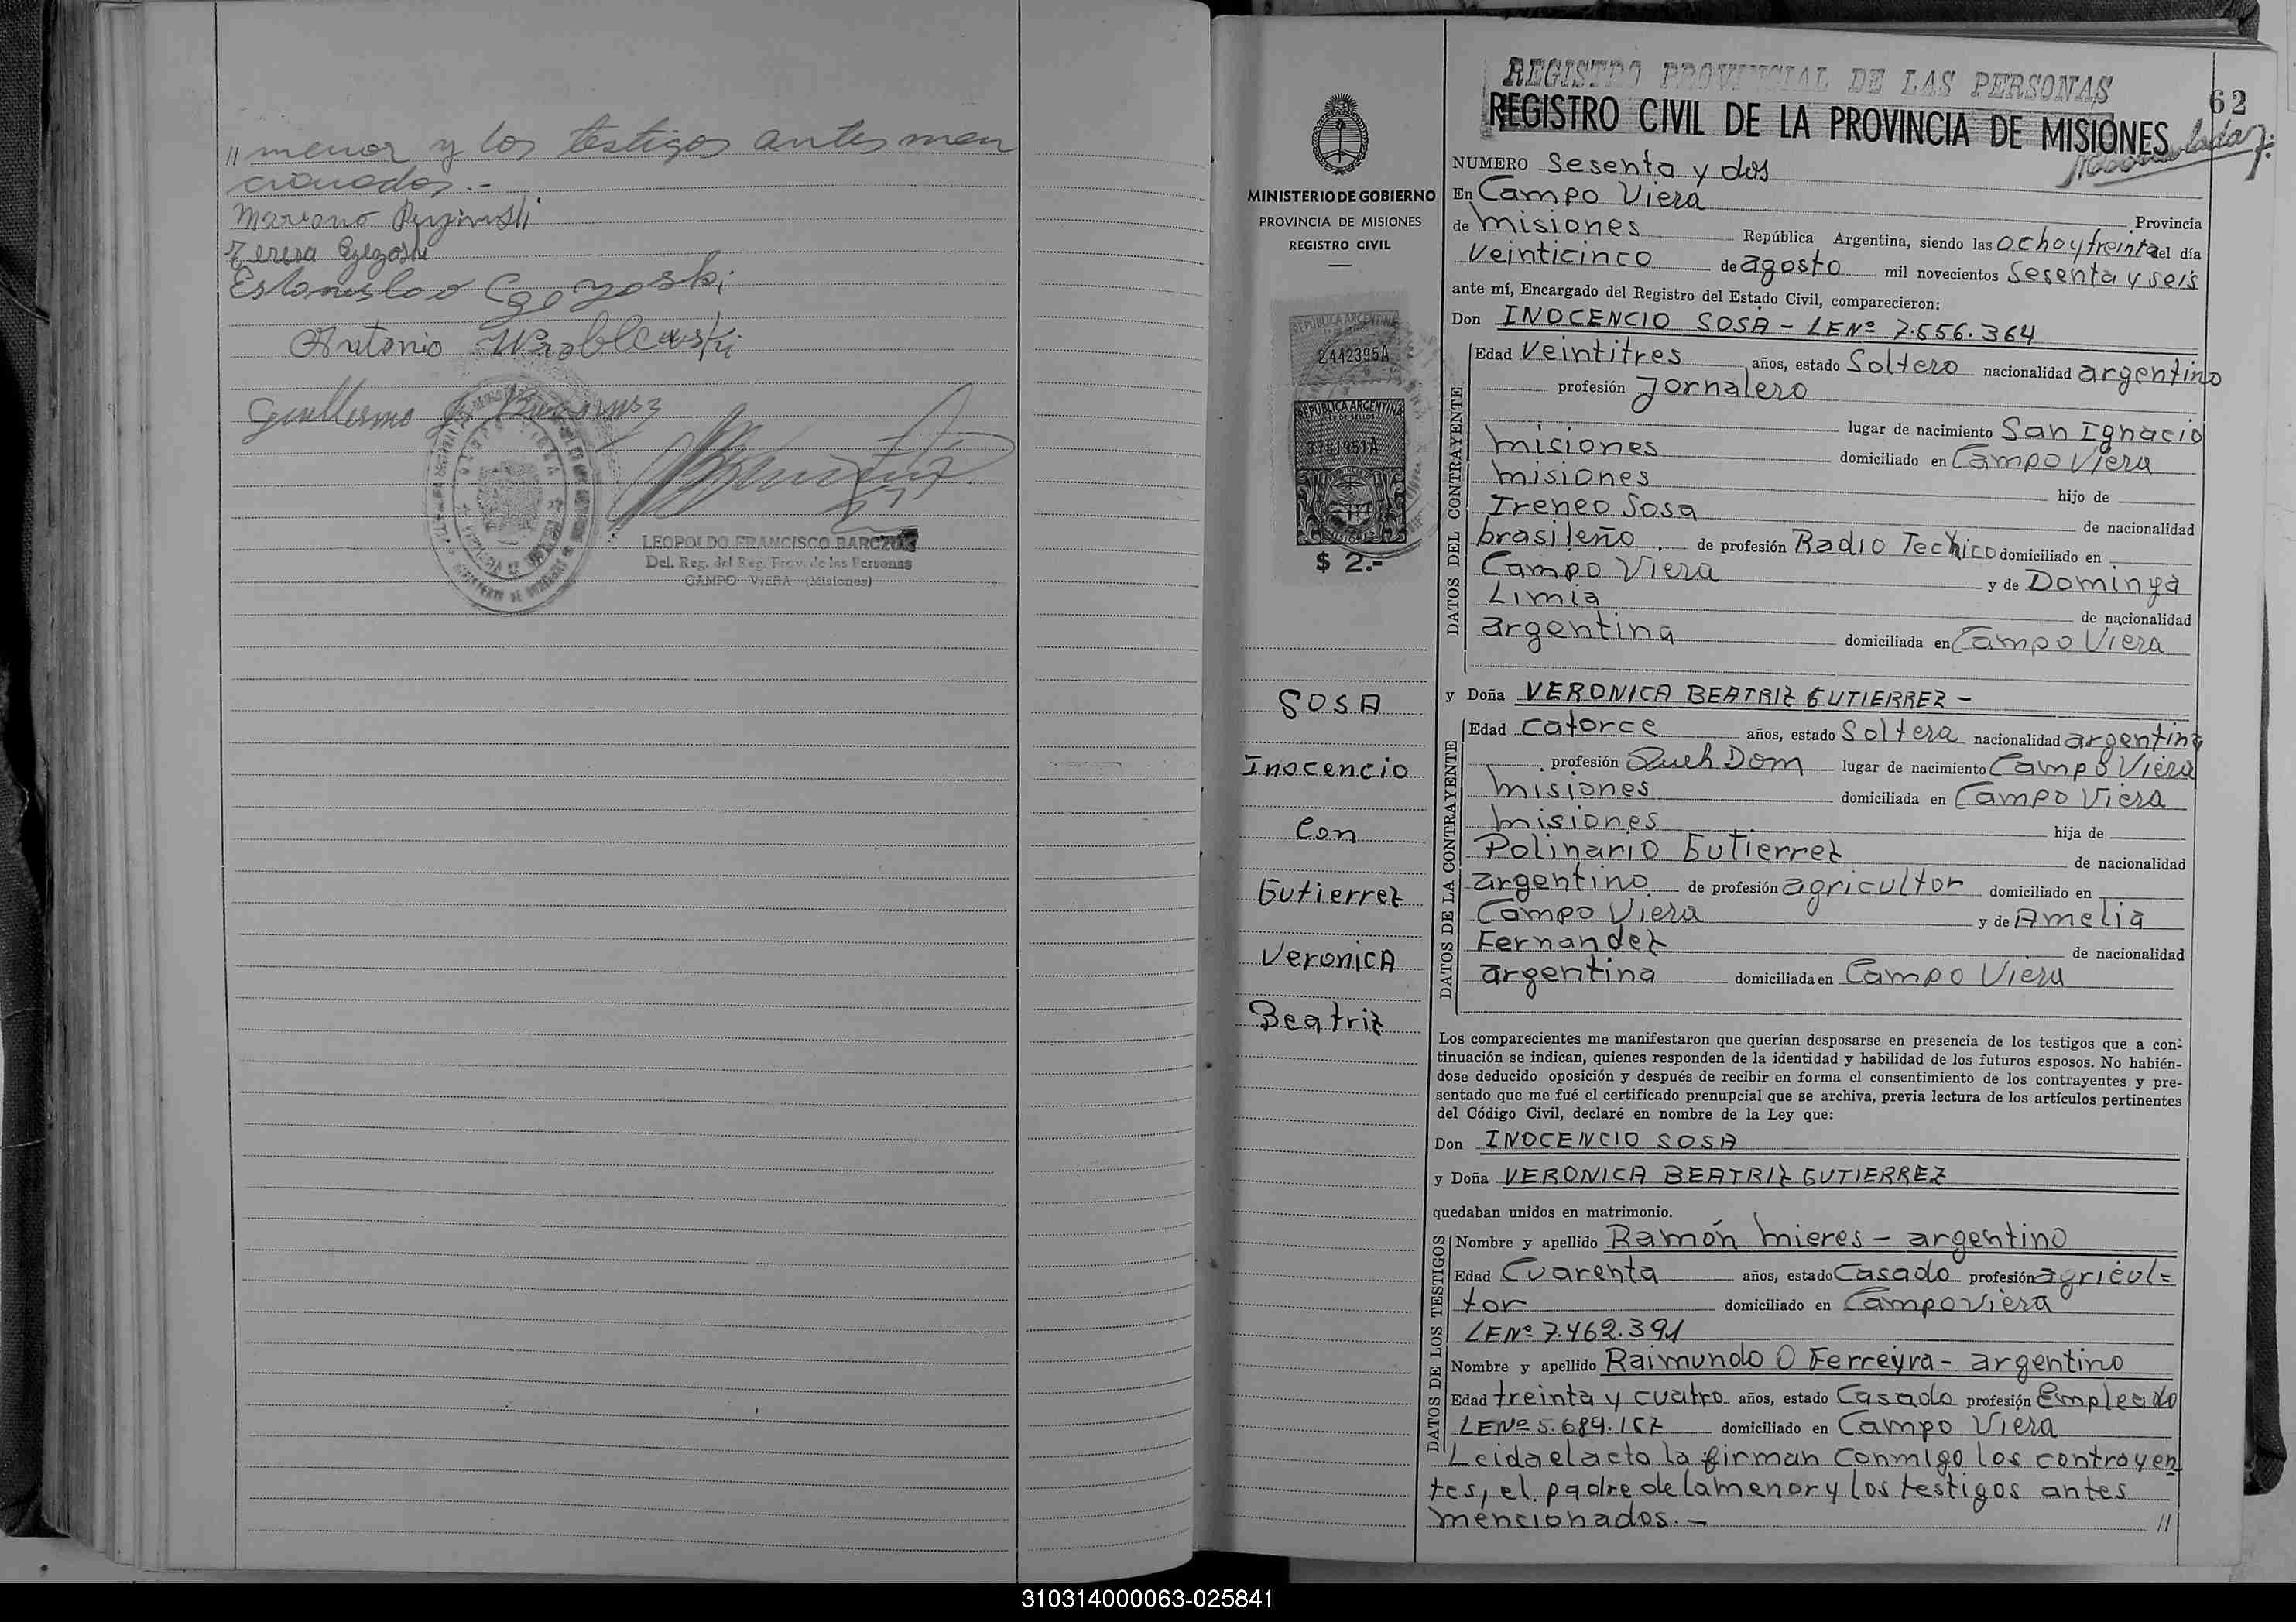 // menor y los testigos antes men
cionados.-
Mariano
Teresa
Estanislao
Antonio Wroblewski
Guillermo
LEOPOLDO FRANCISCO BARCZUK
Del. Reg. del Reg. Prov. de las Personas
CAMPO VIERA (Misiones)
MINISTERIO DE GOBIERNO
PROVINCIA DE MISIONES
REGISTRO CIVIL
REPUBLICA ARGENTINA
2442395A
REPUBLICA ARGENTINA
LEY DE SELLOS
3781951A
$ 2.-
SOSA
Inocencio
Con
Gutierrez
Veronica
Beatriz
REGISTRO PROVINCIAL DE LAS PERSONAS
REGISTRO CIVIL DE LA PROVINCIA DE MISIONES
62
NUMERO Sesenta y dos
En Campo Viera Provincia
de misiones República Argentina, siendo las ocho y treinta del día
veinticinco de agosto mil novecientos Sesenta y seis
ante mí, Encargado del Registro del Estado Civil, comparecieron:
Don INOCENCIO SOSA - LENº 7.556.364
DATOS DEL CONTRAYENTE
Edad veintitres años, estado Soltero nacionalidad argentino
profesión Jornalero
lugar de nacimiento San Ignacio
misiones domiciliado en Campo Viera
misiones hijo de
Ireneo Sosa de nacionalidad
brasileño de profesión Radio Technico domiciliado en
Campo Viera y de Dominga
Limia de nacionalidad
argentina domiciliada en Campo Viera
y Doña VERONICA BEATRIZ GUTIERREZ -
DATOS DE LA CONTRAYENTE
Edad catorce años, estado Soltera nacionalidad argentina
profesión Queh Dom lugar de nacimiento Campo Viera
misiones domiciliada en Campo Viera
misiones hija de
Polinario Gutierrez de nacionalidad
argentino de profesión agricultor domiciliado en
Campo Viera y de Amelia
Fernandez de nacionalidad
argentina domiciliada en Campo Viera
Los comparecientes me manifestaron que querían desposarse en presencia de los testigos que a con-
tinuación se indican, quienes responden de la identidad y habilidad de los futuros esposos. No habién-
dose deducido oposición y después de recibir en forma el consentimiento de los contrayentes y pre-
sentado que me fué el certificado prenupcial que se archiva, previa lectura de los artículos pertinentes
del Código Civil, declaré en nombre de la Ley que:
Don INOCENCIO SOSA
y Doña VERONICA BEATRIZ GUTIERREZ
quedaban unidos en matrimonio.
DATOS DE LOS TESTIGOS
Nombre y apellido Ramón mieres - argentino
Edad Cuarenta años, estado Casado profesión agricul=
tor domiciliado en Campo viera
LENº 7.462.391
Nombre y apellido Raimundo O Ferreyra - argentino
Edad treinta y cuatro años, estado Casado profesión Empleado
LENº 5.689.157 domiciliado en Campo Viera
Leida el acta la firman conmigo los contrayen
tes, el padre de la menor y los testigos antes
mencionados.- //
310314000063-025841